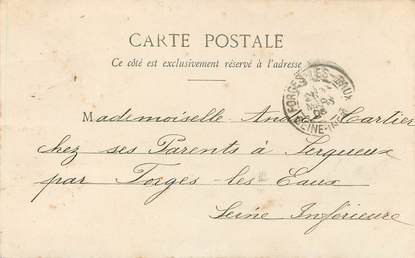 CARTE POSTALE
Ce côté est exclusivement réservé à l'adresse
FORGES-LES-EAUX
SEINE-INF
Mademoiselle Cartier
chez ses Parents à Serqueux
par Forges-les-Eaux
Seine Inférieure